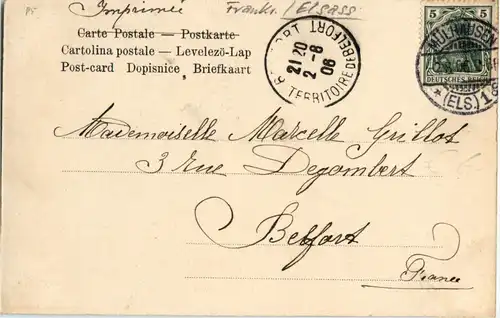 Imprimée
Frankr. / Elsass
Carte Postale — Postkarte
Cartolina postale — Levelező-Lap
Post-card Dopisnice Briefkaart
BELFORT
21 20
2 - 8
06
TERRITOIRE DE BELFORT
5 5
DEUTSCHES REICH
MÜLHAUSEN
* (ELS) 1
Mademoiselle Marcelle Grillot
3 rue Degombert
Belfort
France